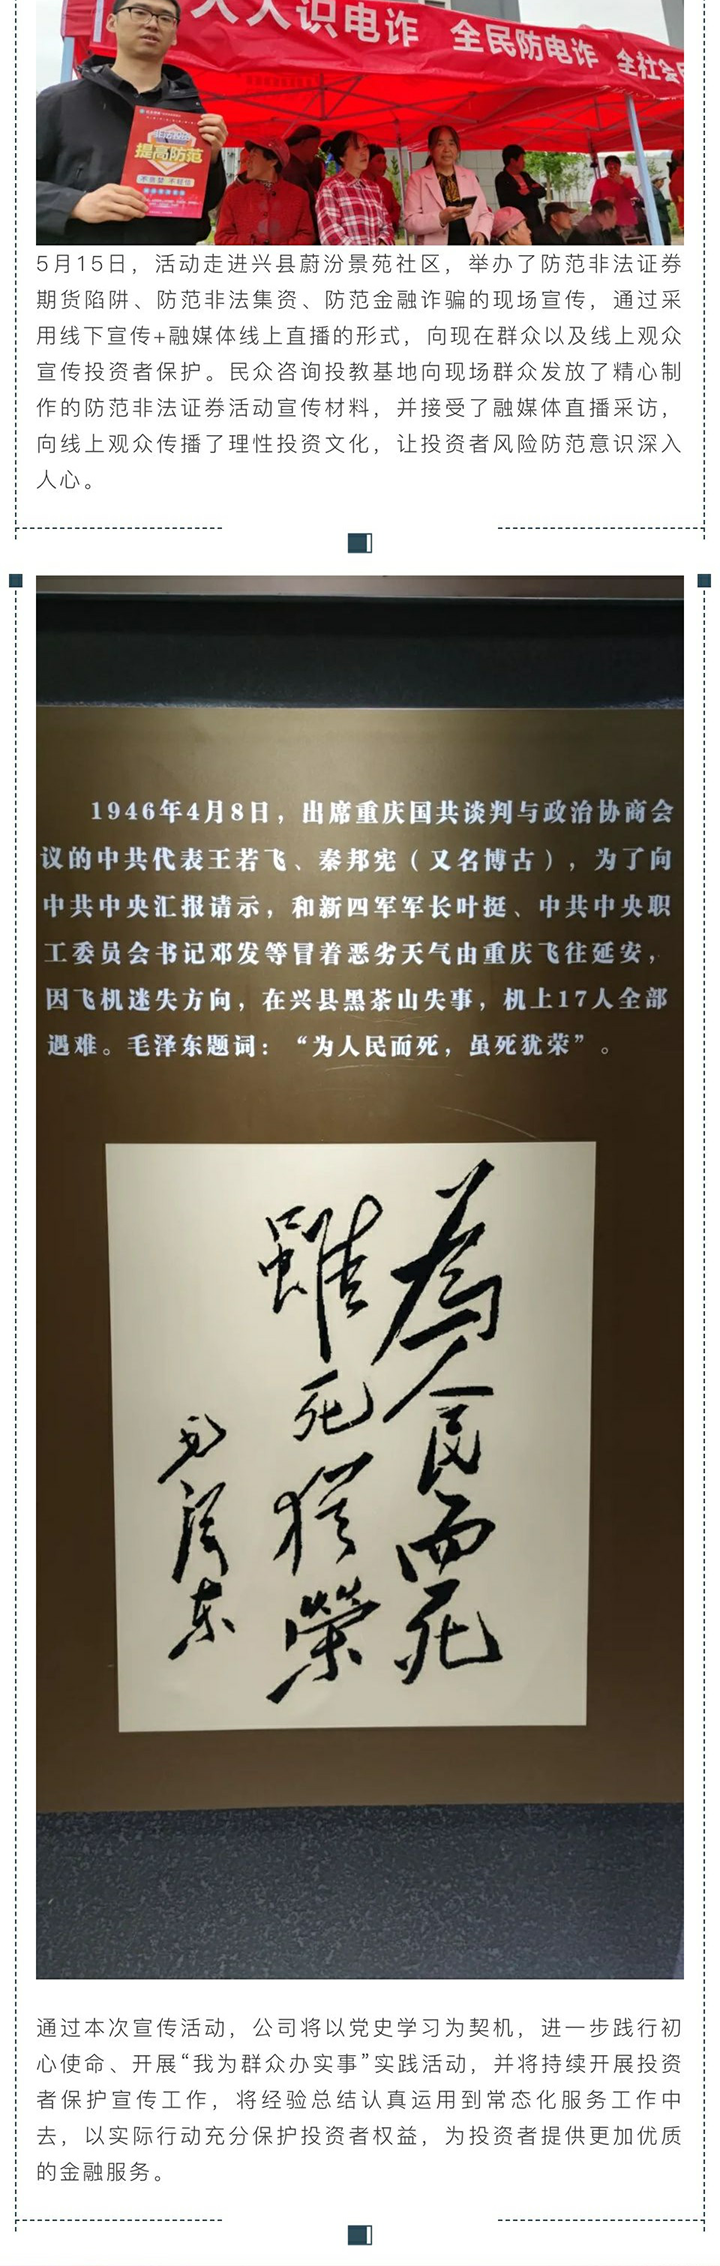 人人识电诈 全民防电诈 全社会
提高防范
5月15日，活动走进兴县蔚汾景苑社区，举办了防范非法证券
期货陷阱、防范非法集资、防范金融诈骗的现场宣传，通过采
用线下宣传+融媒体线上直播的形式，向现在群众以及线上观众
宣传投资者保护。民众咨询投教基地向现场群众发放了精心制
作的防范非法证券活动宣传材料，并接受了融媒体直播采访，
向线上观众传播了理性投资文化，让投资者风险防范意识深入
人心。
1946年4月8日，出席重庆国共谈判与政治协商会
议的中共代表王若飞、秦邦宪（又名博古），为了向
中共中央汇报请示，和新四军军长叶挺、中共中央职
工委员会书记邓发等冒着恶劣天气由重庆飞往延安，
因飞机迷失方向，在兴县黑茶山失事，机上17人全部
遇难。毛泽东题词：“为人民而死，虽死犹荣”。
為人民而死
雖死猶榮
毛泽东
通过本次宣传活动，公司将以党史学习为契机，进一步践行初
心使命、开展“我为群众办实事”实践活动，并将持续开展投资
者保护宣传工作，将经验总结认真运用到常态化服务工作中
去，以实际行动充分保护投资者权益，为投资者提供更加优质
的金融服务。